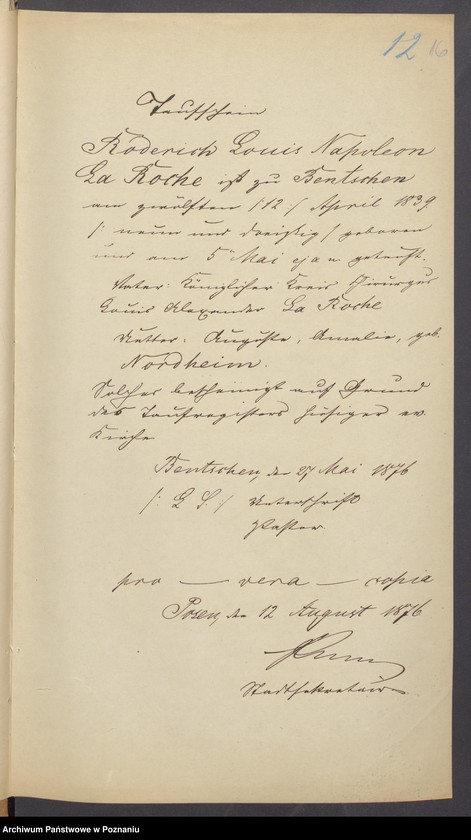 12 16
Taufschein
Roderich Louis Napoleon
La Roche ist zu Bentschen
am zwölften /:12:/ April 1839
/: neun und dreißig / geboren
und am 5 Mai ej a getauft.
Vater: Königlicher Kreis Chirurgus
Louis Alexander La Roche
Mutter: Auguste, Amalie, geb.
Nordheim.
Solches bescheinigt auf Grund
des Taufregisters hiesiger ev.
Kirche
Bentschen, den 27 Mai 1876
/: L. S. :/ Unterschrift
Pastor
pro — vera — copia
Posen, den 12 August 1876
Stadtsekretair
Archiwum Państwowe w Poznaniu